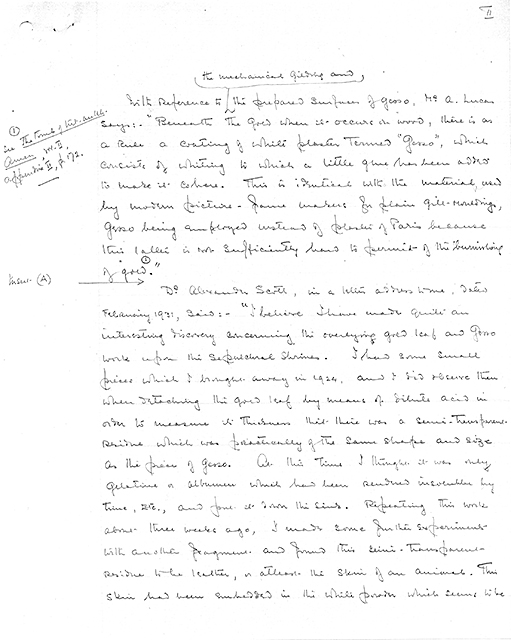 II
the mechanical gilding and
With Reference to the prepared surfaces of gesso, Mr A. Lucas
says:- "Beneath the gold when it occurs on wood, there is as
a rule a coating of white plaster termed "Gesso", which
consists of whiting to which a little glue has been added
to make it cohere. This is identical with the material, used
by modern picture-frame makers for plain gilt-mouldings,
Gesso being employed instead of plaster of Paris because
this latter is not sufficiently hard to permit of the burnishing
of gold. ①"
① in The Tomb of Tut-ankh-
Amen
Vol. II,
appendix II, p. 172.
Insert (A)
Dr Alexander Scott, in a letter address to me, dated
February 1931, said:- "I believe I have made quite an
interesting discovery concerning the overlying gold leaf and Gesso
work upon the Sepulchral Shrines. I had some small
pieces which I brought away in 1924, and I did observe then
when detaching the gold leaf by means of dilute acid in
order to measure its thickness that there was a semi-transparent
residue which was practically of the same shape and size
as the piece of Gesso. At this time I thought it was only
gelatine or albumen which had been rendered insoluble by
time, etc., and put it down the sink. Repeating this work
about three weeks ago, I made some further experiments
with another fragment and found this semi-transparent
residue to be leather, or at least the skin of an animal. This
skin had been embedded in the white powder which seems to be